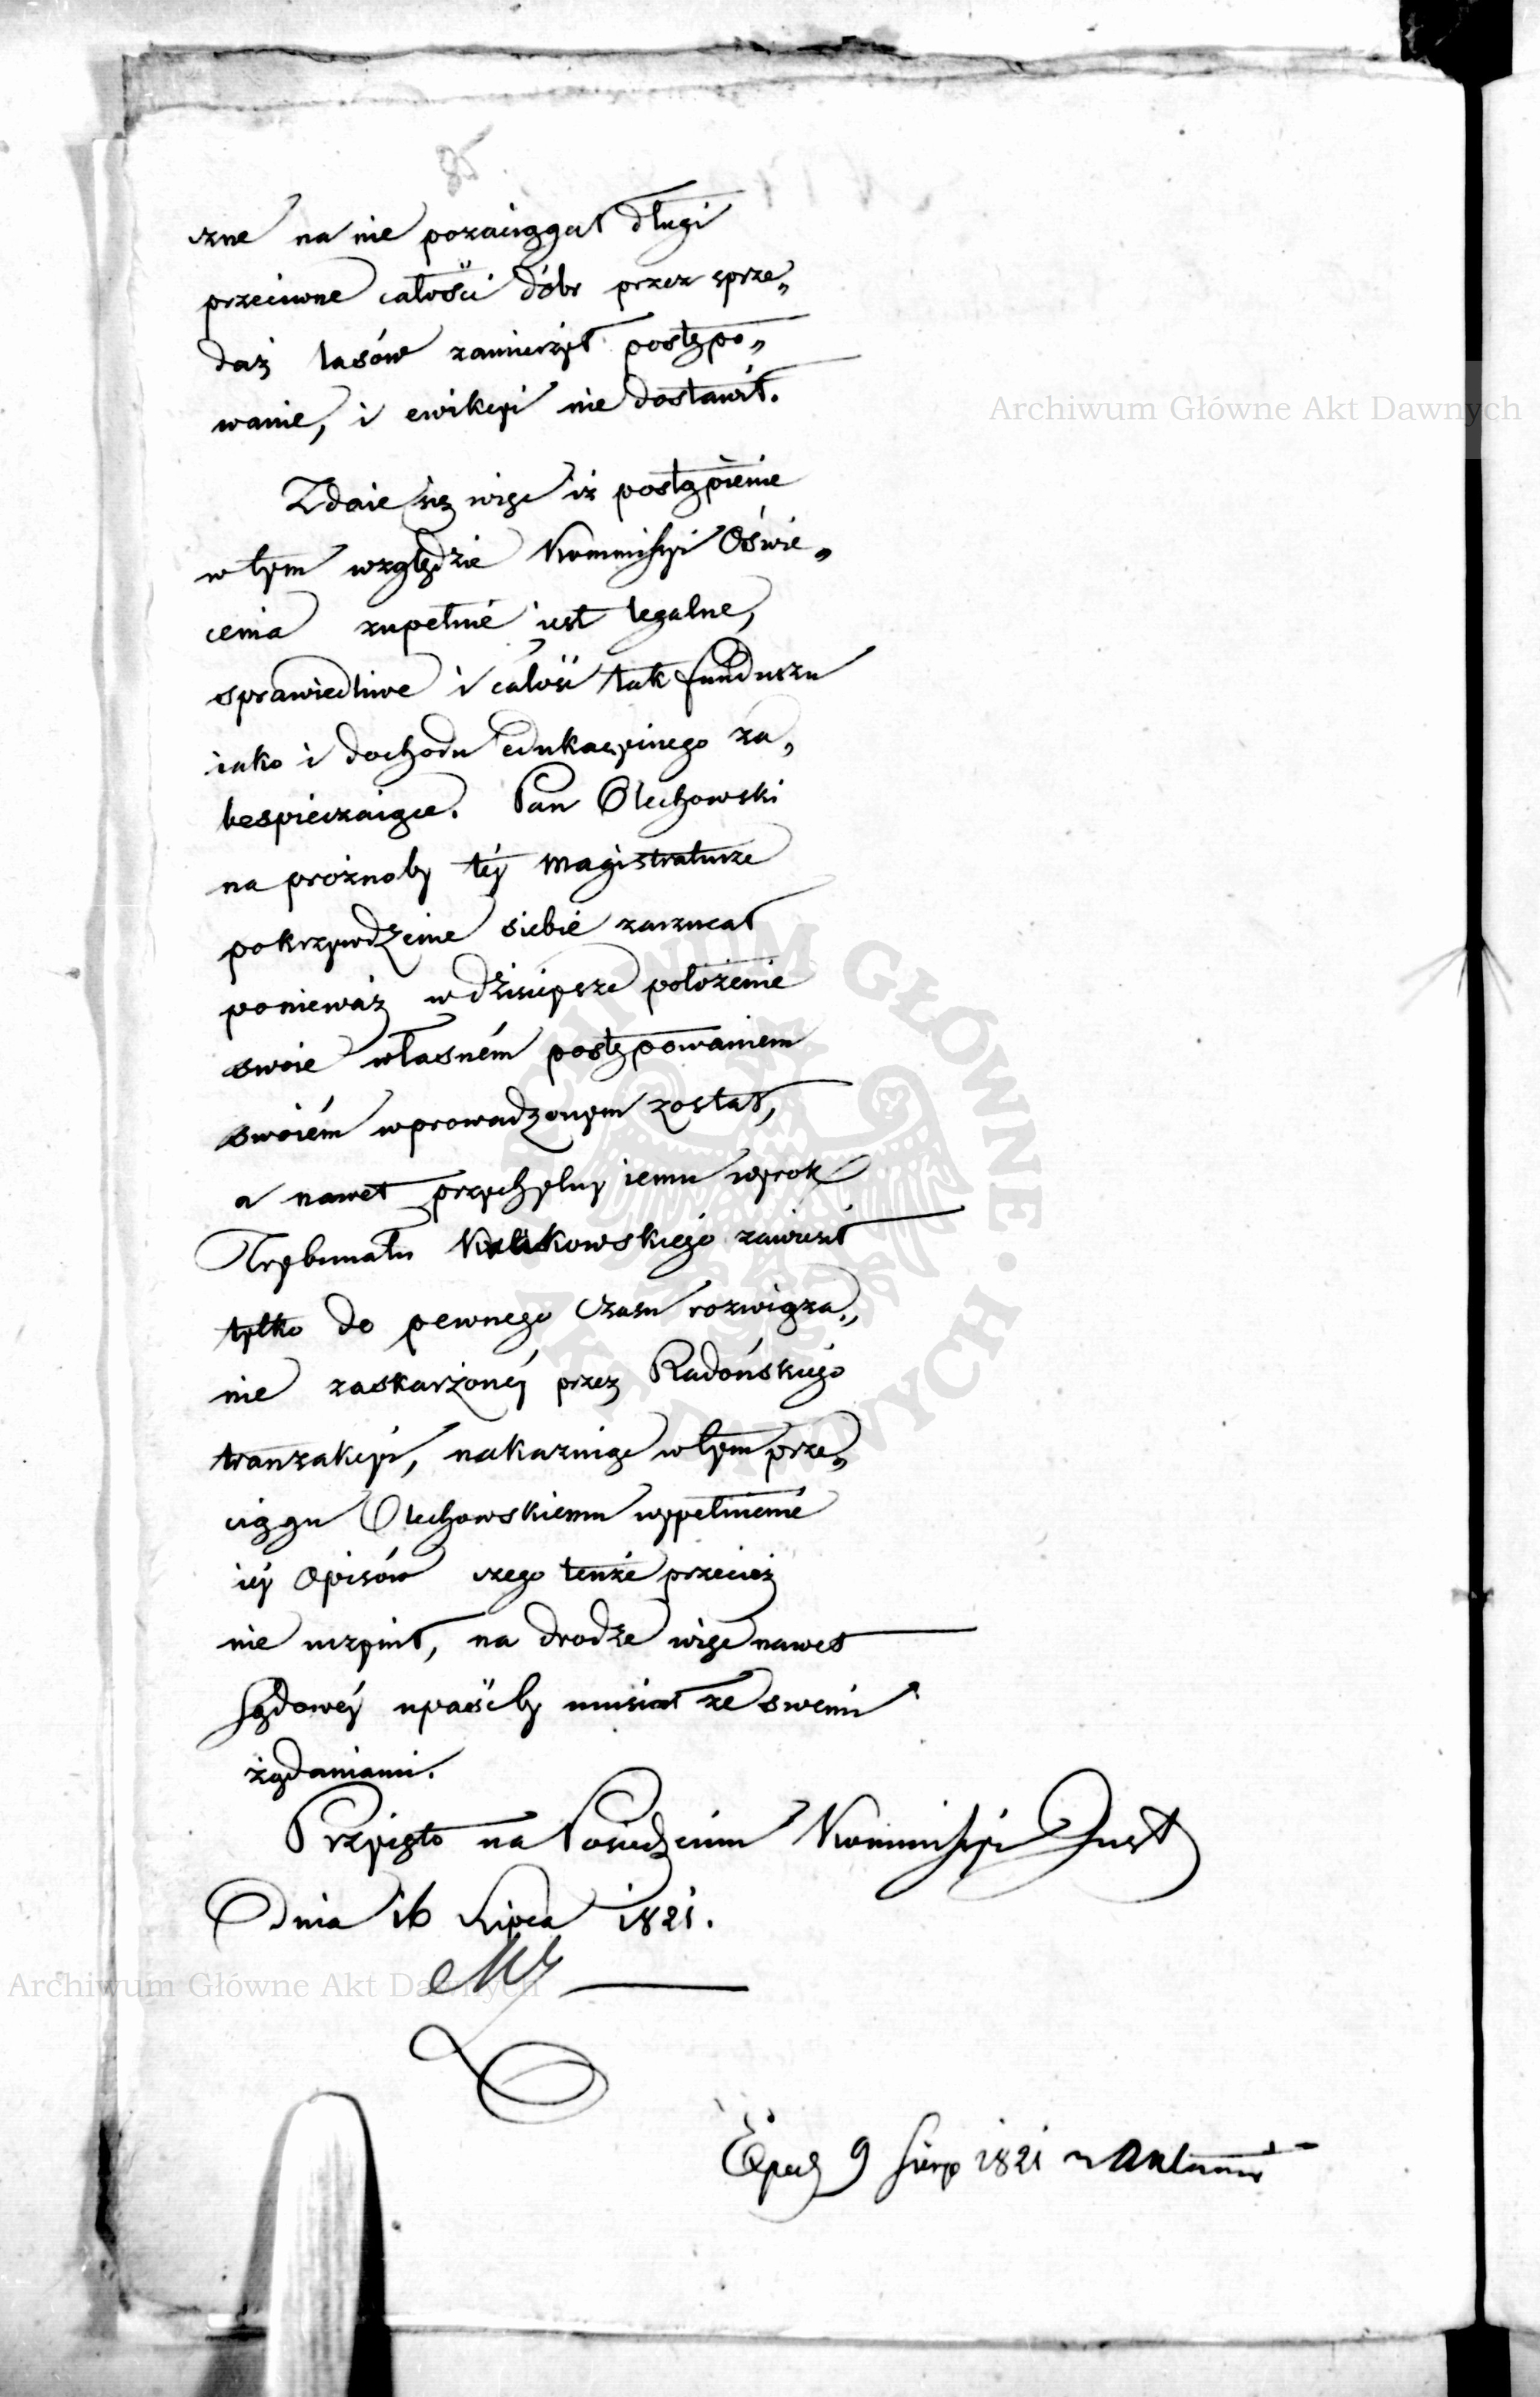 85
czne na nie pozaciągał długi
przeciwne całości dóbr przez sprze„
daż lasów zamierzył postępo„
wanie, i ewikcyi nie dostawił.
Zdaie się więc iż postąpienie
w tym względzie Kommissyi Oświe„
cenia zupełnie iest legalne,
sprawiedliwe i całość tak funduszu
iako i dochodu edukacyinego za„
bespieczaiące. Pan Olechowski
na prożnoby téy Magistraturze
pokrzywdzenie siebie zarzucał
ponieważ w dzisieysze położenie
swoie własném postępowaniem
swoiém wprowadzonym został,
a nawet przychylny iemu wyrok
Trybunału Krakowskiego zawiesił
tylko do pewnego czasu rozwiąza„
nie zaskarżonéy przez Radońskiego
tranzakcyi, nakazuiąc w tym prze„
ciągu Olechowskiemu wypełnienie
iéy Opisów czego tenże przecież
nie uczynił, na drodze więc nawet
sądowéy upaśćby musiał ze swemi
żądaniami.
Przyięto na Posiedzeniu Kommissyi
Dnia 16 Lipca 1821.
9 Sierp 1821
Archiwum Główne Akt Dawnych
Archiwum Główne Akt Dawnych
ARCHIWUM GŁÓWNE AKT DAWNYCH